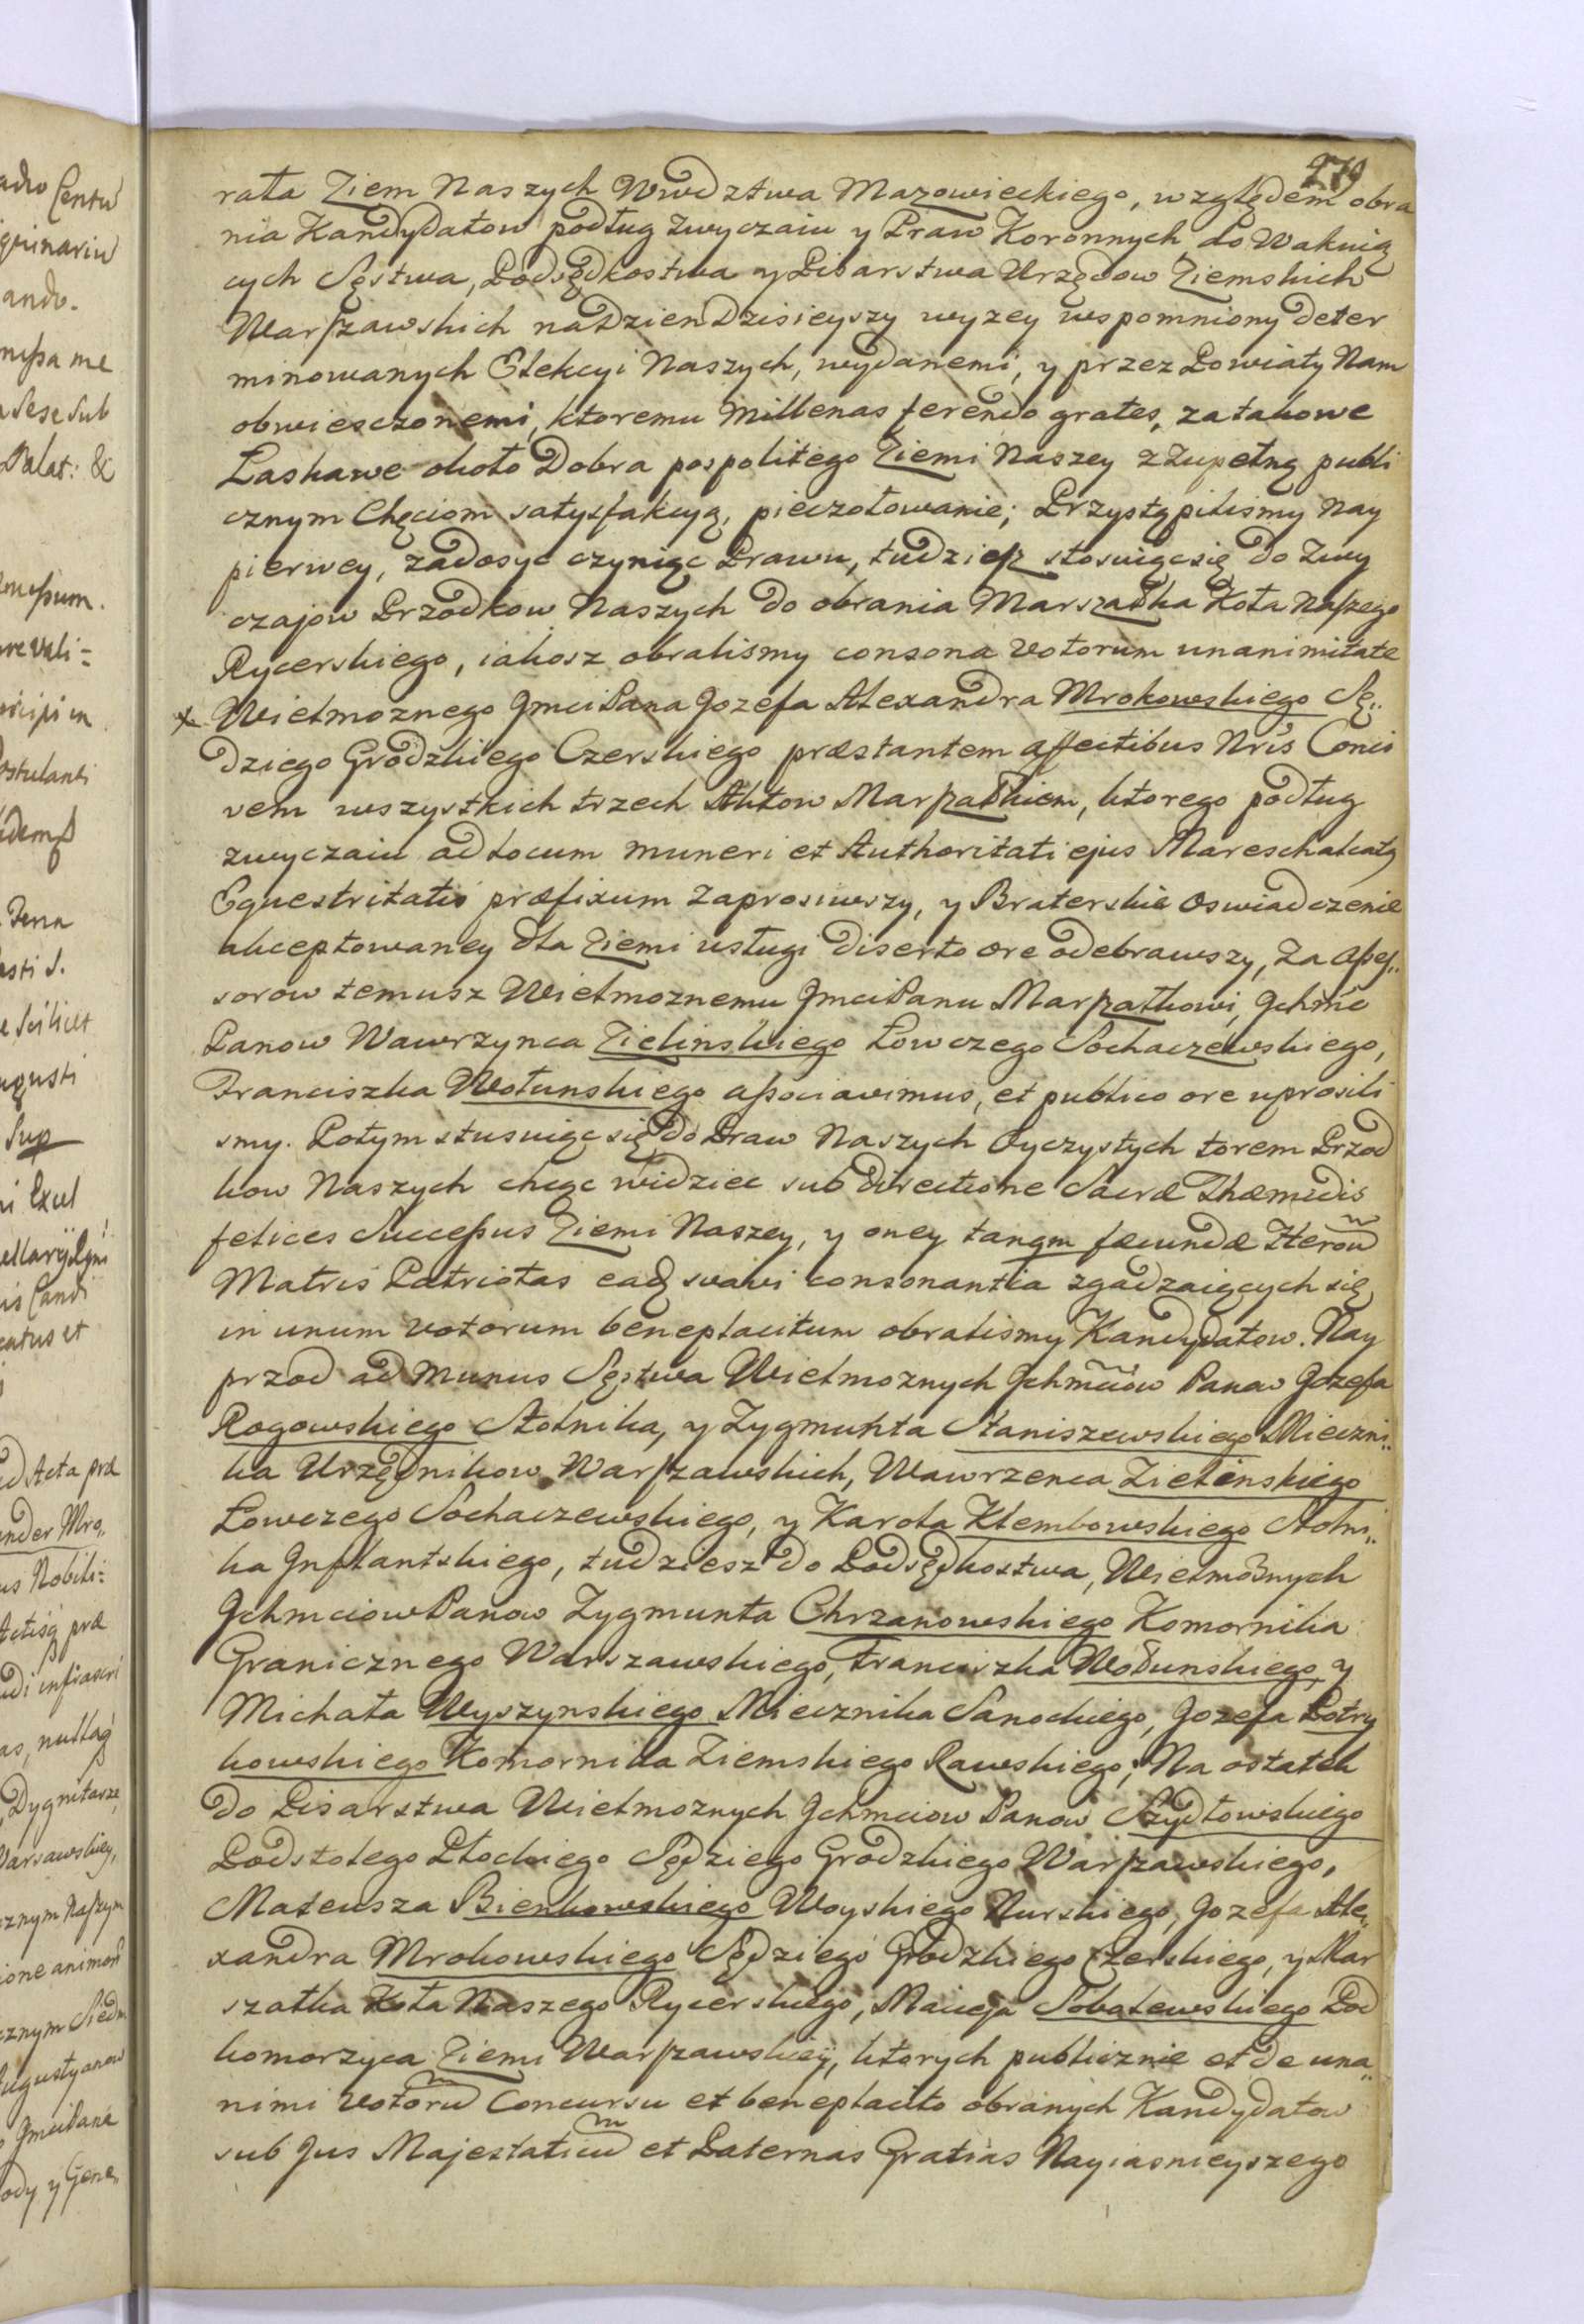 adro Centu
quinariu
ando.
messa me
Sese sub
Palat: &
messum.
re vali=
Postulanti
idemq
Terra
asti S.
e Scilicet
ugusti
Sup
ni Excel
is Candi
catus et
ed Acta præ
ander Mro„
us Nobili=
Actisq præ
udi infrascri
as, nullaq
Dygnitarze
Warsawskiey,
cznym Naszym
ione animorũ
cznym Siedm
Augustyanow
JmciPana
ody y Gene„
279
rała Ziem Naszych Wwdztwa Mazowieckiego, względem obra
nia Kandydatow podług zwyczaiu y Praw Koronnych do Wakuią
cych Sęstwa, Podsędkostwa y Pisarstwa Urzędow Ziemskich
Warszawskich na Dzien Dzisieyszy wyzey wspomniony deter
minowanych Elekcyi Naszych, wydanemi, y przez Powiaty Nam
obwiesczonemi, ktoremu Millenas ferendo grates, za takowe
Łaskawe około Dobra pospolitego Ziemi Naszey z Zupełną publi
cznym Chęciom satysfakcyą, pieczołowanie; Przystąpilismy Nay
pierwey, zadosyc czyniąc Prawu, tudziesz stosuiąc się do Zwy
czajow Przodkow Naszych do obrania Marszałka Koła Naszego
Rycerskiego, iakosz obralismy consona votorum unanimitate
x Wielmoznego JmciPana Jozefa Alexandra Mrokowskiego Sę„
dziego Grodzkiego Czerskiego præstantem affectibus Nris Conci
vem wszystkich trzech Aktow Marszałkiem, ktorego podług
zwyczaiu ad Locum muneri et Authoritati ejus Mareschalcatq
Equestritatis præfixum Zaprosiwszy, y Braterskie Oswiadczenie
akceptowaney dla Ziemi usługi diserto ore odebrawszy, Za Asses„
sorow temusz Wielmoznemu JmciPanu Marszałkowi, Jchmc
Panow Wawrzynca Zielinskiego Łowczego Sochaczewskiego,
Franciszka Wołunskiego associavimus, et publico ore uprosili
smy. Potym stusuiąc się do Praw Naszych Oyczystych torem Przod
kow Naszych chcąc widziec sub directione Sacræ Thæmidis
felices Successus Ziemi Naszey, y oney tanqm fæcundæ Heroũ
Matris Patriotas eadq suavi consonantia zgadzaiących się
in unum votorum beneplacitum obralismy Kandydatow. Nay
przod ad Munus Sęstwa Wielmoznych Jchmciow Panow Jozefa
Rogowskiego Stolnika, y Zygmunta Staniszewskiego Mieczni„
ka Urzędnikow Warszawskich, Wawrzenca Zielinskiego
Łowczego Sochaczewskiego, y Karola Klembowskiego Stolni„
ka Jnflantskiego, tudziesz do Podsędkostwa, Wielmoznych
Jchmciow Panow Zygmunta Chrzanowskiego Komornika
Granicznego Warszawskiego, Franciszka Wołunskiego, y
Michała Wyszynskiego Miecznika Sanockiego, Jozefa Potry
kowskiego Komornika Ziemskiego Rawskiego; Na ostatek
do Pisarstwa Wielmoznych Jchmciow Panow Szydłowskiego
Podstolego Płockiego Sędziego Grodzkiego Warszawskiego,
Mateusza Bienkowskiego Woyskiego Nurskiego, Jozefa Ale„
xandra Mrokowskiego Sędziego Grodzkiego Czerskiego, y Mar
szałka Koła Naszego Rycerskiego, Macieja Sobolewskiego Pod
komorzyca Ziemi Warszawskiey, ktorych publicznie et de una„
nimi votorũ Concursu et beneplacito obranych Kandydatow
sub Jus Majestaticũ et Paternas Gratias Nayiasnieyszego